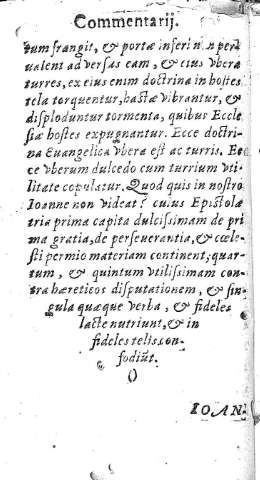 Commentarij.
tum frangit, & portæ inferi non præ
ualent aduersas eam, & eius vbera
turres, ex eius enim doctrina in hostes
tela torquentur, hastæ vibrantur, &
disploduntur tormenta, quibus Eccle
siæ hostes expugnantur. Ecce doctri-
na Euangelica vbera est ac turris. Ec-
ce vberum dulcedo cum turrium vti-
litate copulatur. Quod quis in nostro
Ioanne non videat? cuius Epistolæ
tria prima capita dulcissimam de pri
ma gratia, de perseuerantia, & cœle-
sti permio materiam continent; quar-
tum, & quintum vtilissimam con-
tra hæreticos disputationem, & sin-
gula quæque verba, & fideles
lacte nutriunt, & in
fideles telis con-
fodiũt.
()
IOAN-